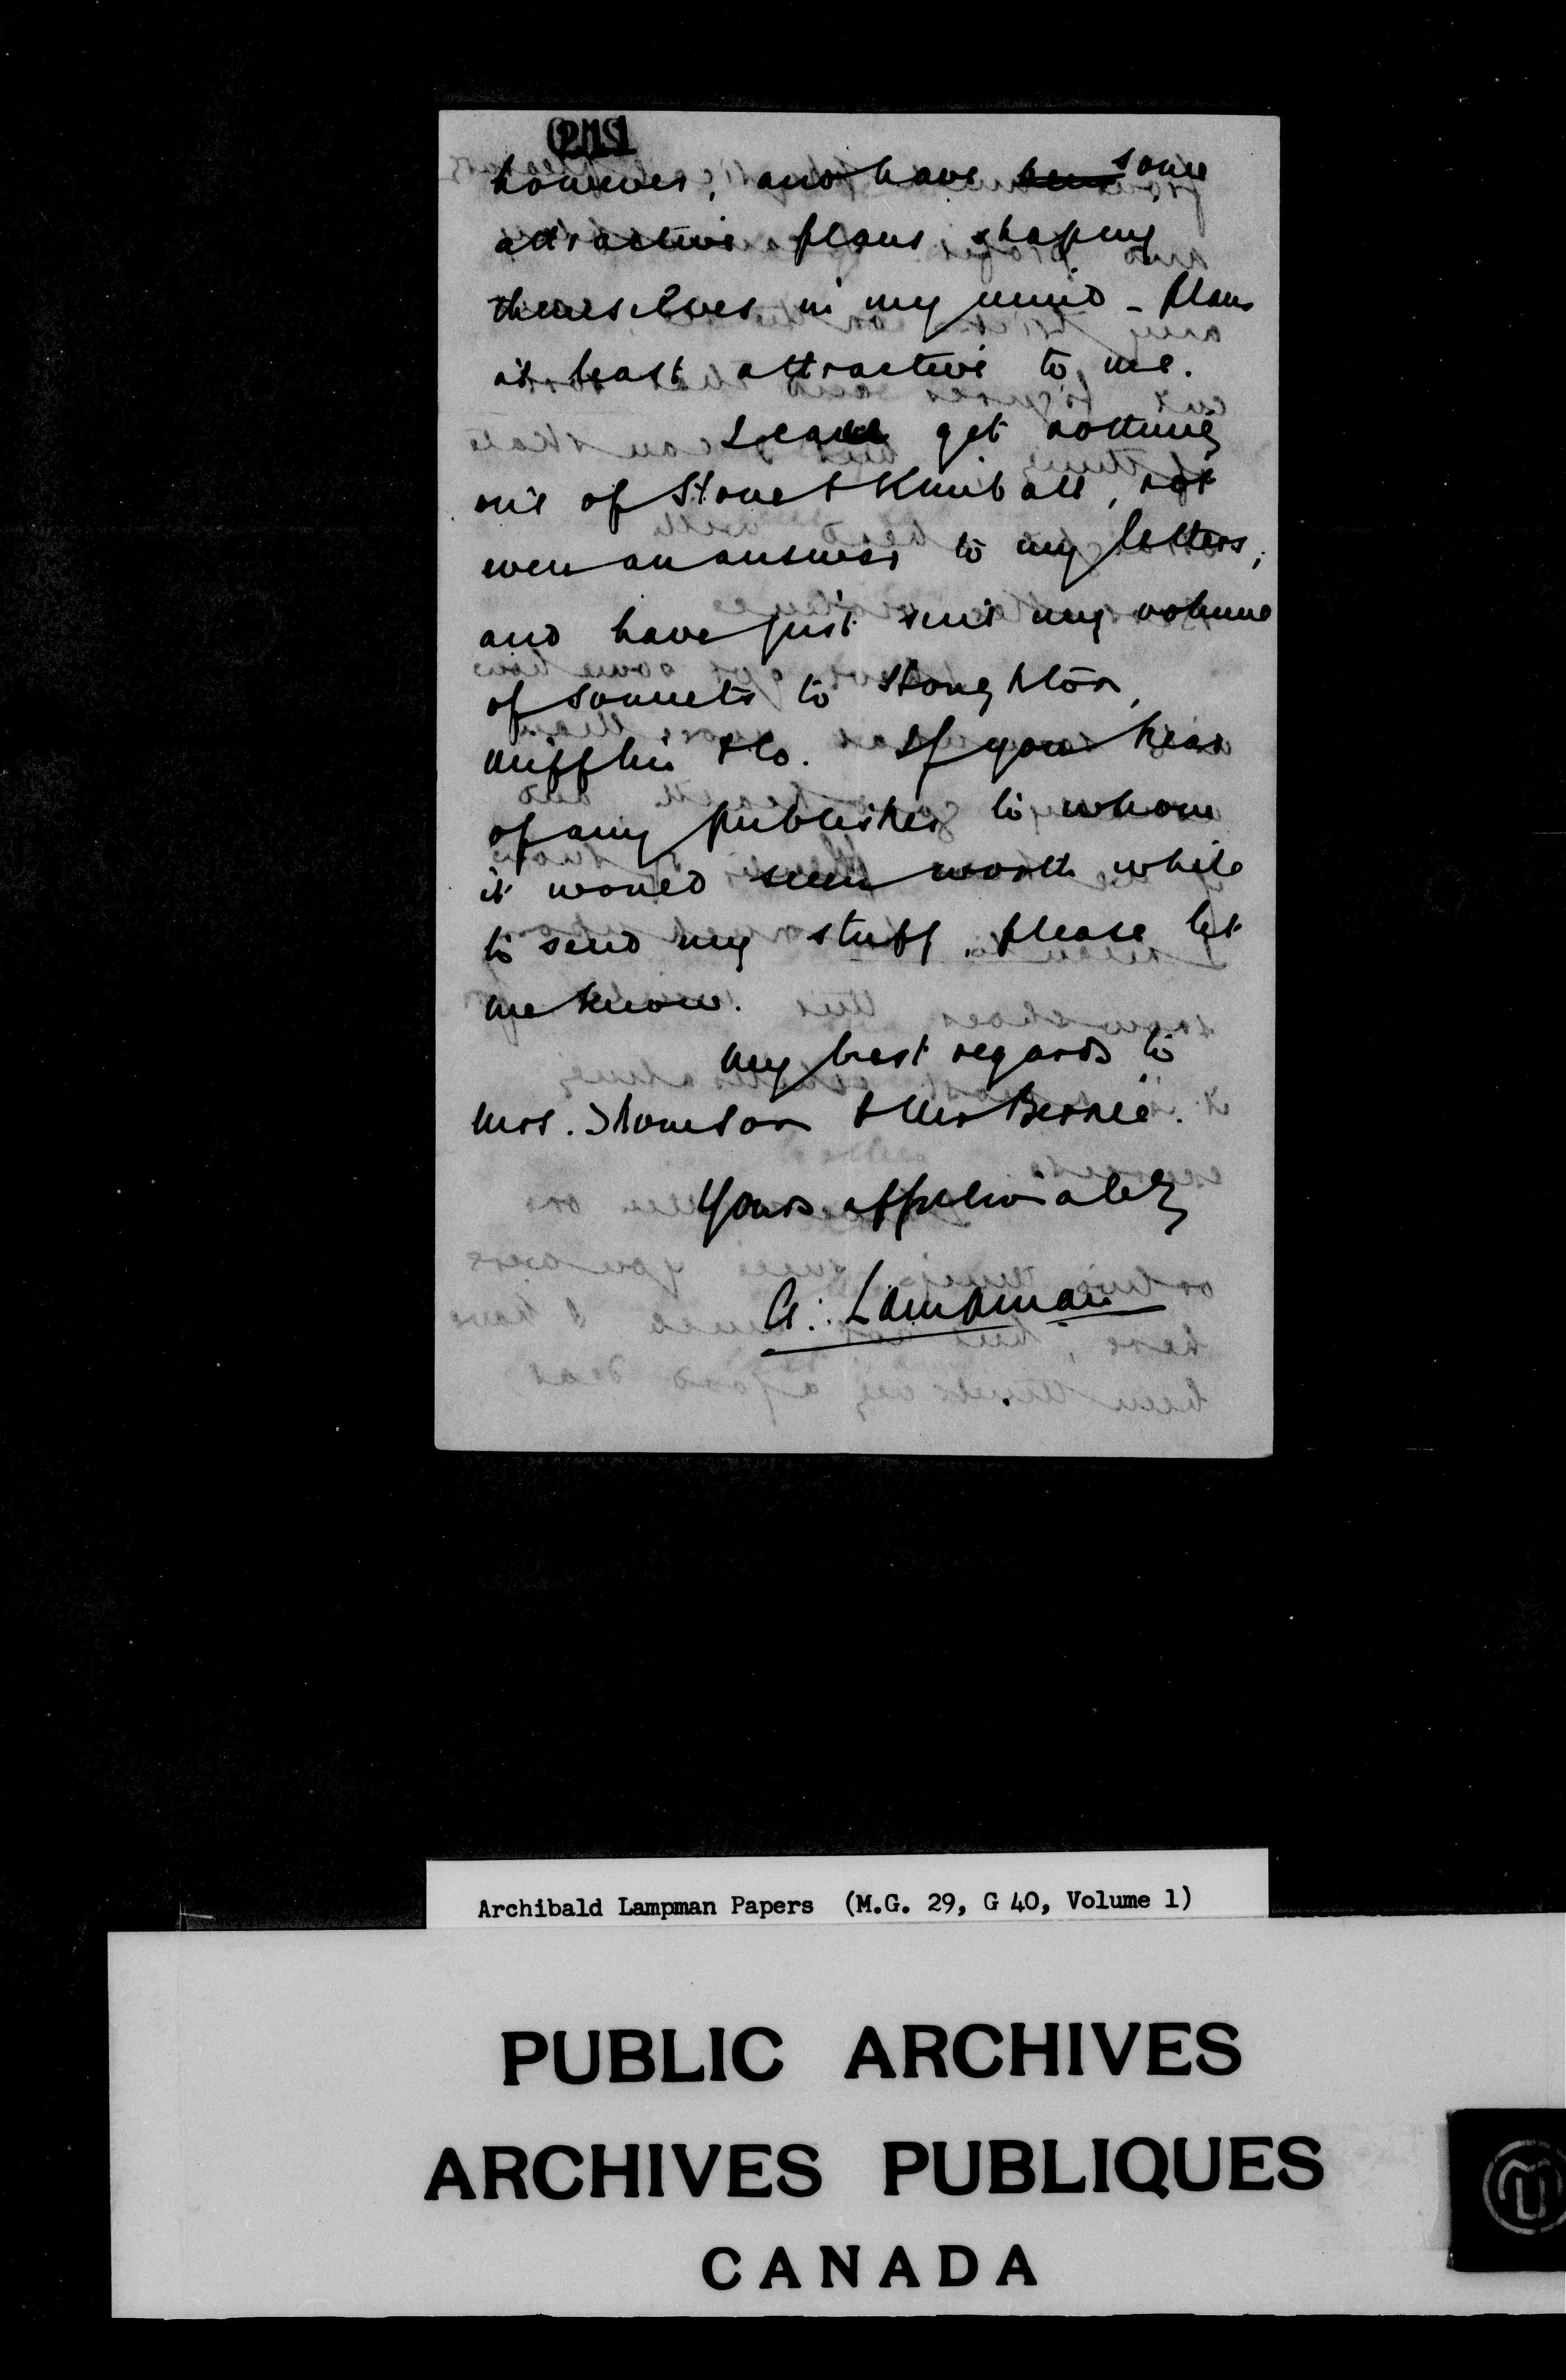 however, and have some
attractive plans shaping
themselves in my mind – plans
at least attractive to me.
I can get nothing
out of Stone & Kimball, not
even an answer to my letters,
and have just sent my volume
of sonnets to Houghton,
Mifflin & Co. If you hear
of any publisher to whom
it would seem worth while
to send my stuff, please let
me know.
My best regards to
Mrs. Thomson & Mr Bernie.
Yours affectionately
A. Lampman
Archibald Lampman Papers (M.G. 29, G 40, Volume 1)
PUBLIC ARCHIVES
ARCHIVES PUBLIQUES
CANADA